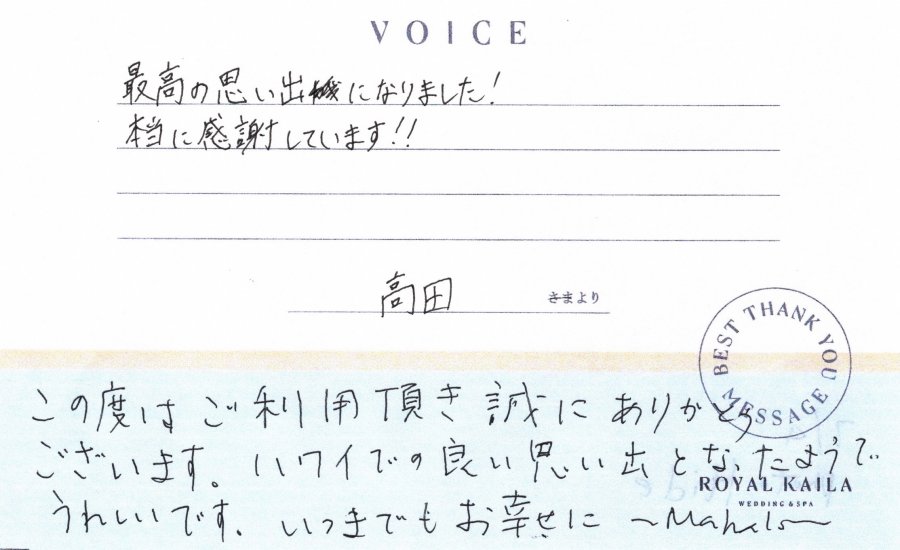 VOICE
最高の思い出になりました!
本当に感謝しています!!
高田 さまより
BEST THANK YOU MESSAGE
この度はご利用頂き誠にありがとう
ございます。ハワイでの良い思い出となったようで
ROYAL KAILA
WEDDING & SPA
うれしいです。いつまでもお幸せに 〜Mahalo〜